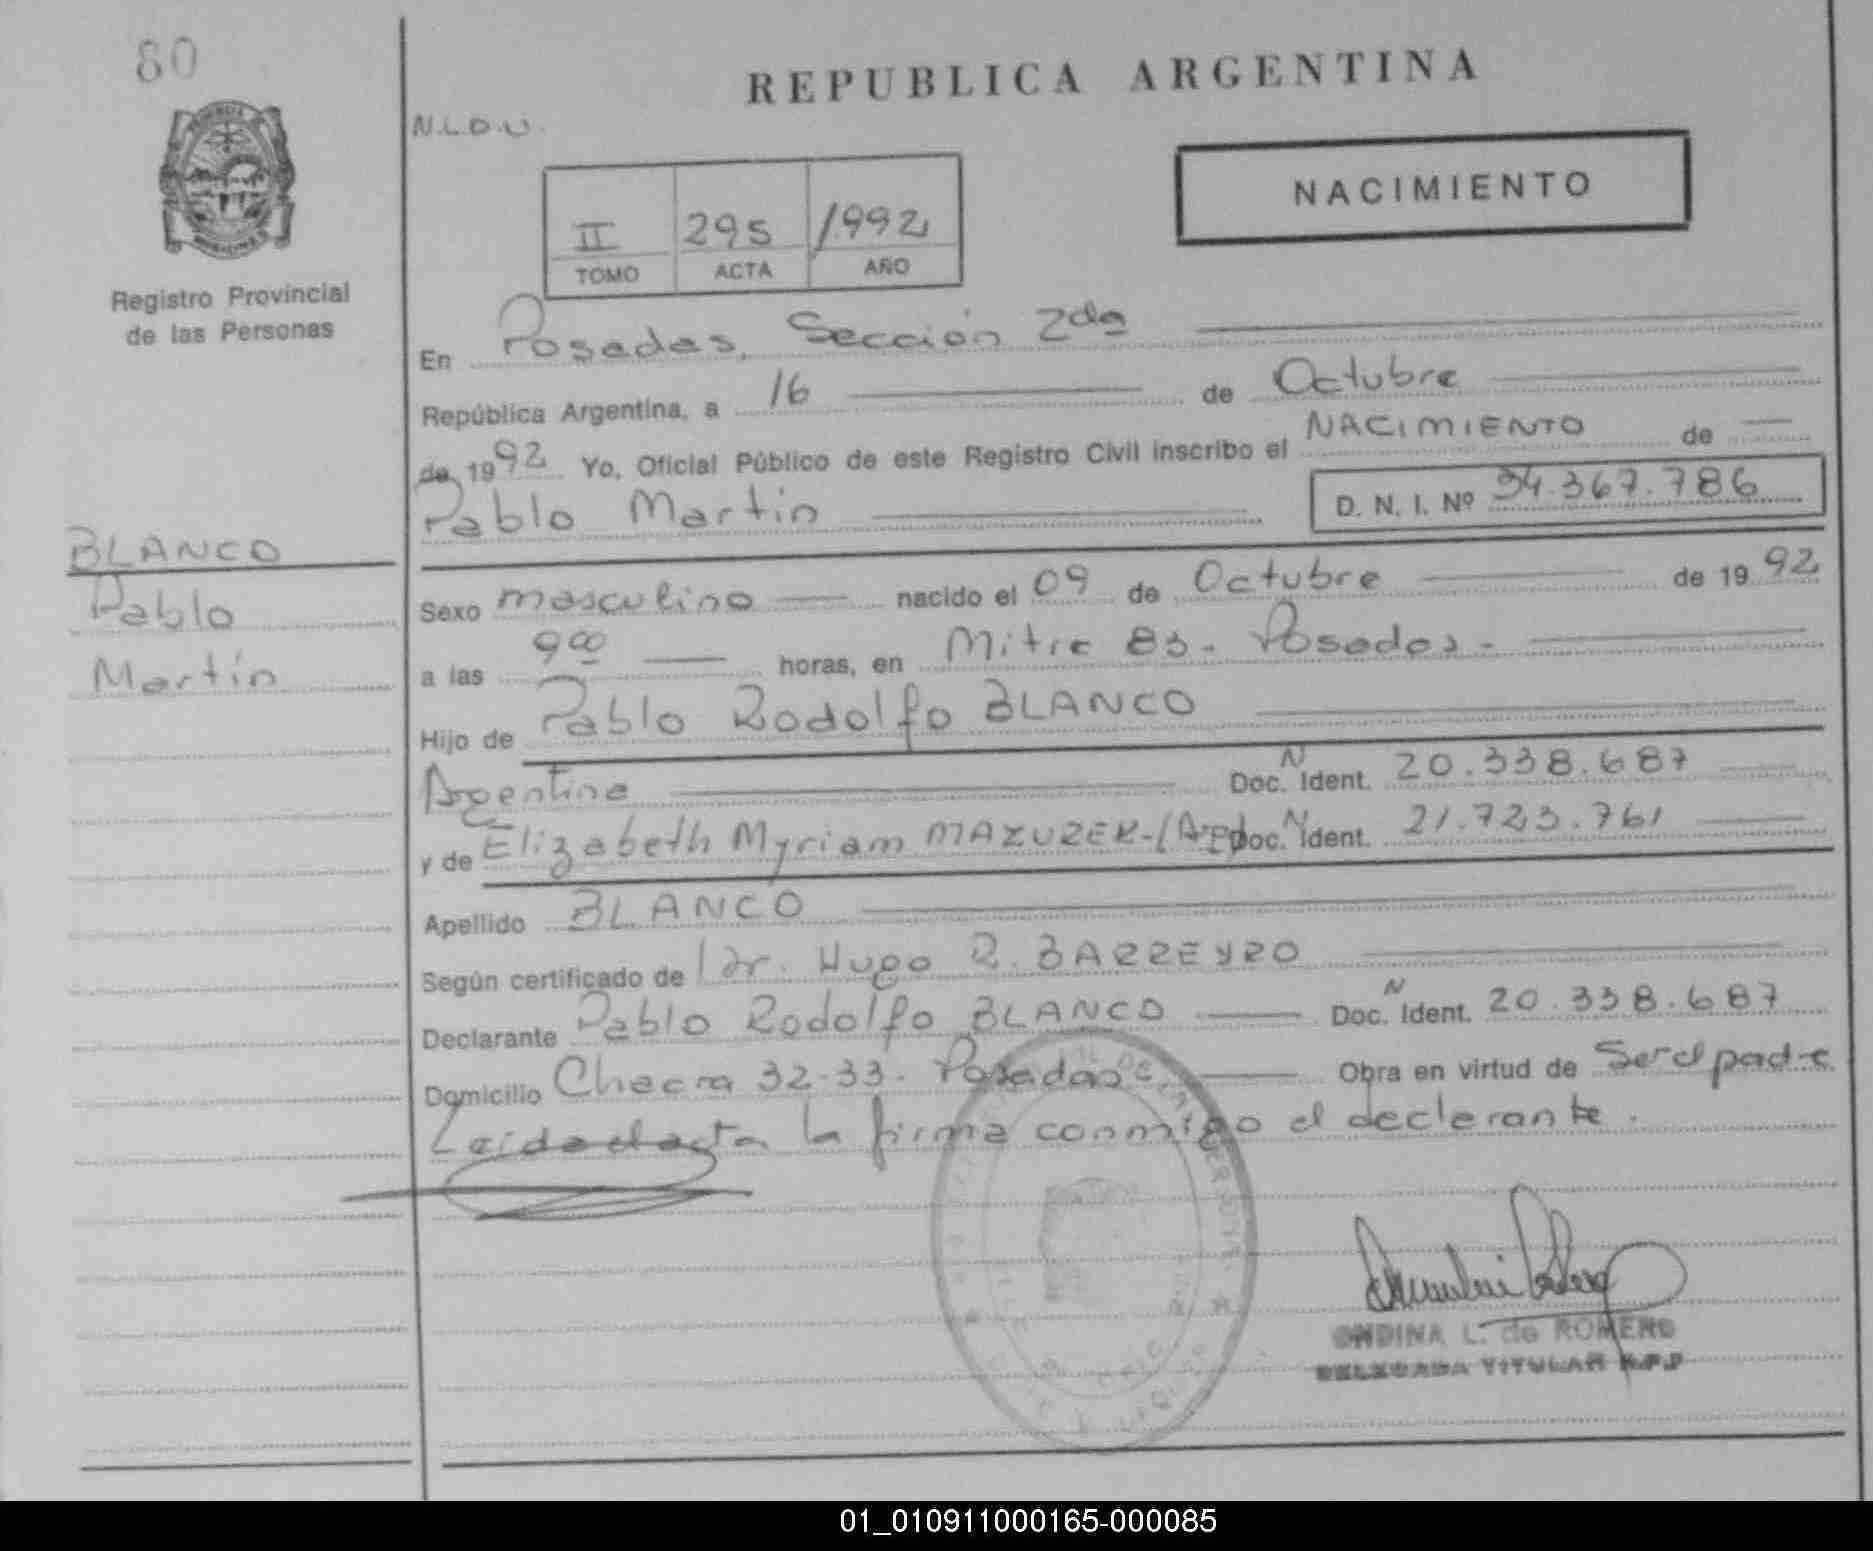 80
REPUBLICA ARGENTINA
N.L.D.U.
NACIMIENTO
II 295 1992
TOMO ACTA AÑO
Registro Provincial
de las Personas
En Posadas, Sección 2da
República Argentina, a 16 de Octubre
de 1992 Yo, Oficial Público de este Registro Civil inscribo el NACIMIENTO de
Pablo Martin D. N. I. Nº 34.367.786
BLANCO
Pablo
Martín
Sexo masculino nacido el 09 de Octubre de 1992
a las 9 00 horas, en Mitre 83. Posadas.
Hijo de Pablo Rodolfo BLANCO
Argentino Doc. N Ident. 20.338.687
y de Elizabeth Myriam MAZUREK-(Arg) Doc. N Ident. 21.723.761
Apellido BLANCO
Según certificado de Dr. Hugo R. BARREYRO
Declarante Pablo Rodolfo BLANCO Doc. N Ident. 20.338.687
Domicilio Chacra 32-33. Posadas Obra en virtud de Ser el padre
Leída el acta la firma conmigo el declarante.
ONDINA L. de ROMERO
DELEGADA TITULAR R.P.P
01_010911000165-000085